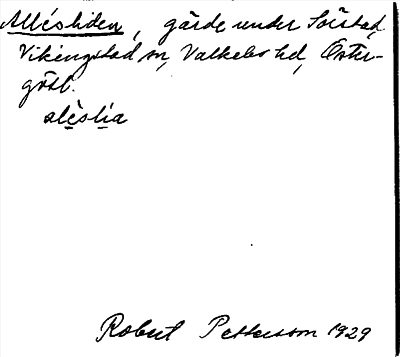 Alléshiden, gärde under Sörstad,
Vikingstad sn, Valkebo hd, Öster-
götl.
alèslía
Robert Pettersson 1929